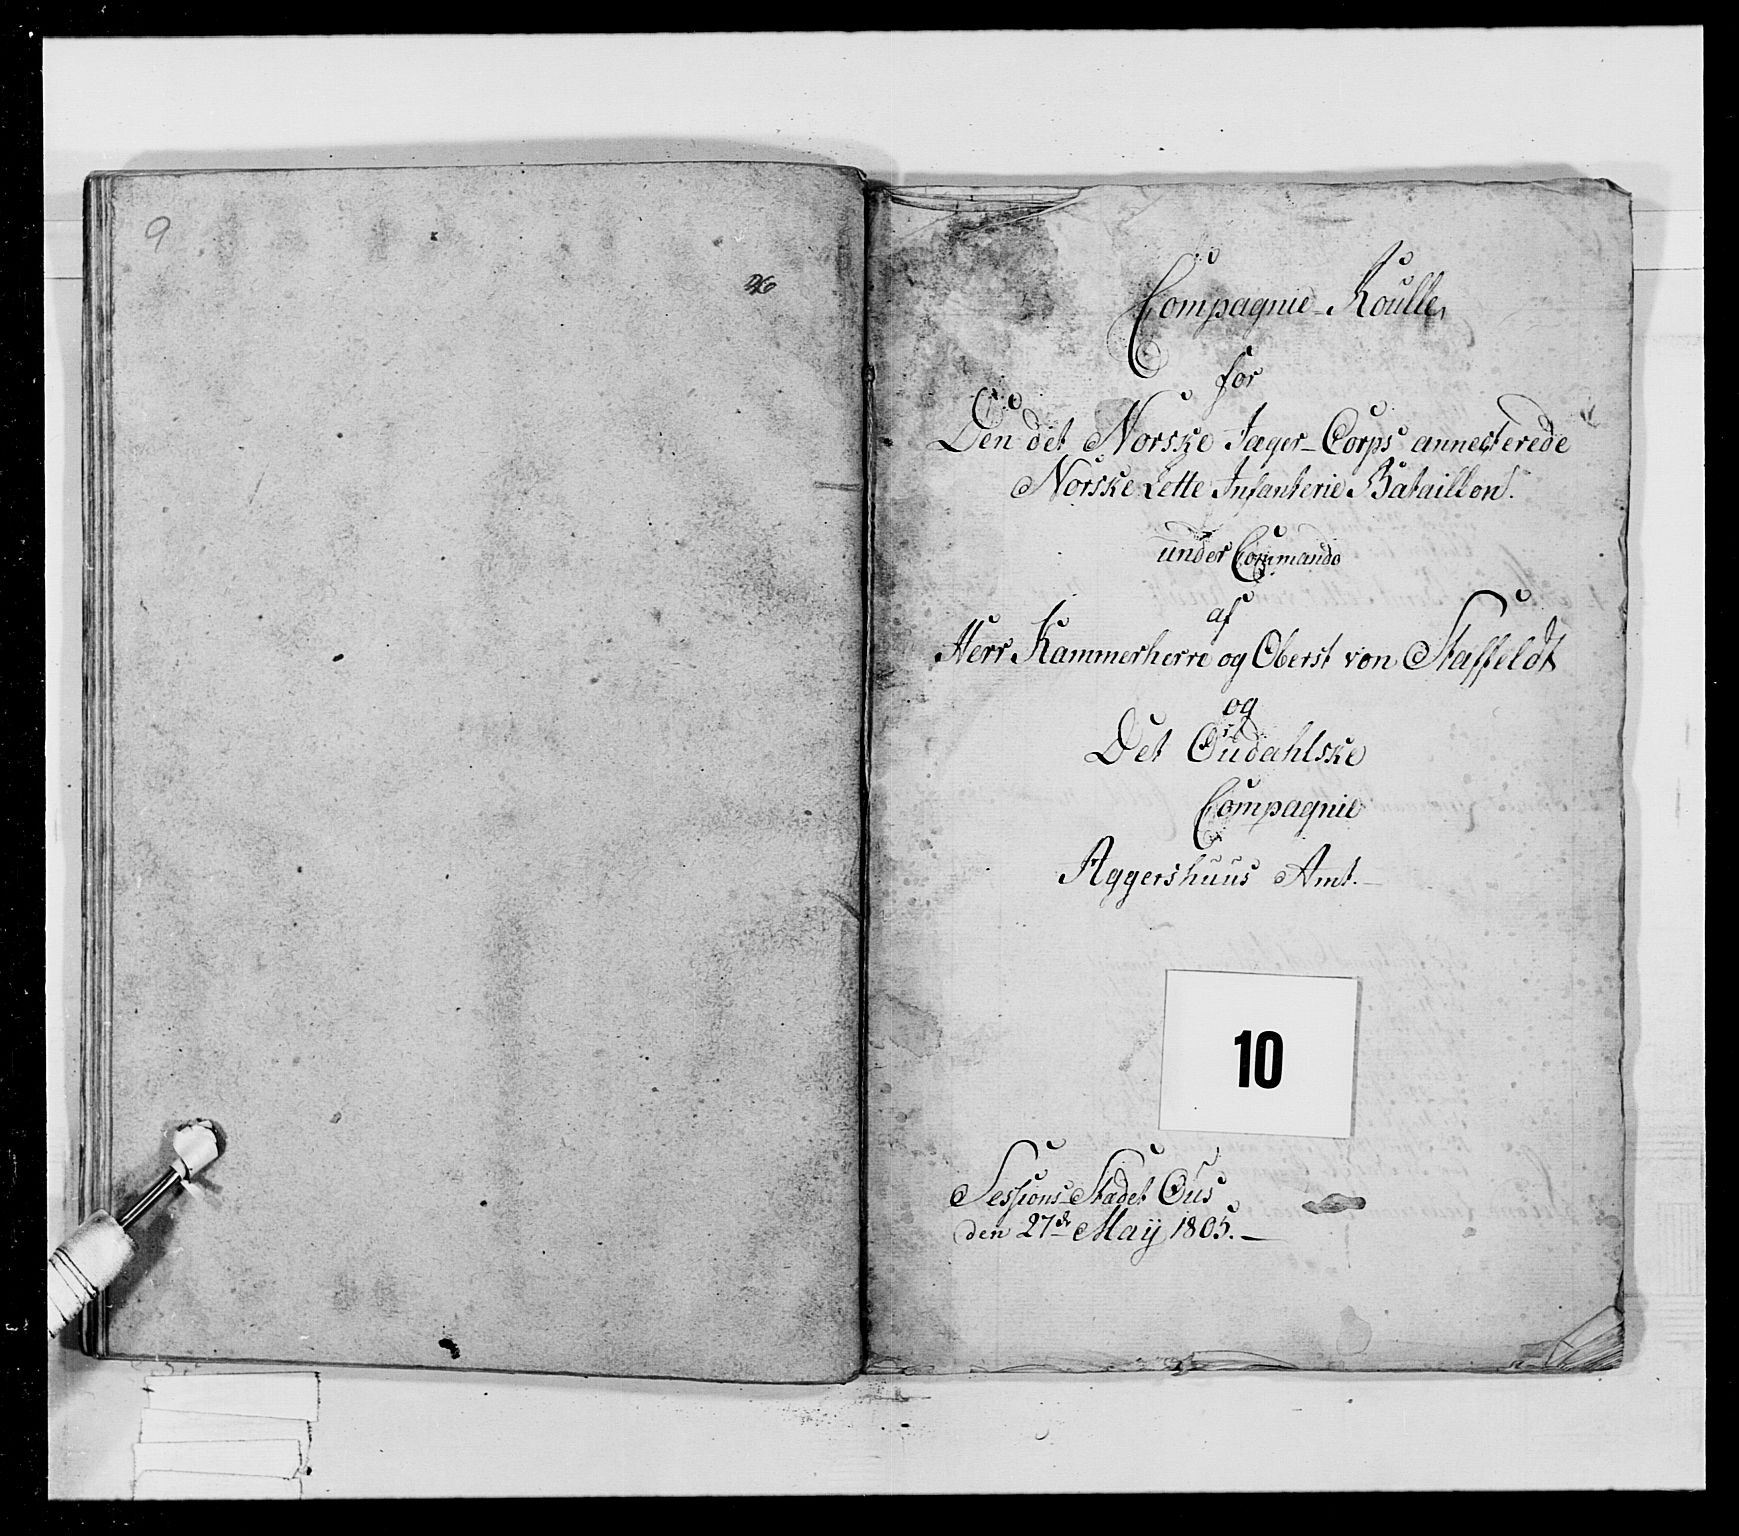 9
26
Compagnie-Roulle,
for
Den det Norske Jæger-Corps annecterede
Norske Lette Infanterie Bataillon.
under Commando
af
Herr Kammerherre og Oberst von Staffeldt
og
Det Oudahlske
Compagnie
Aggershuus Amt.
10
Sessions Stadet Ous
den 27de Maÿ 1805.